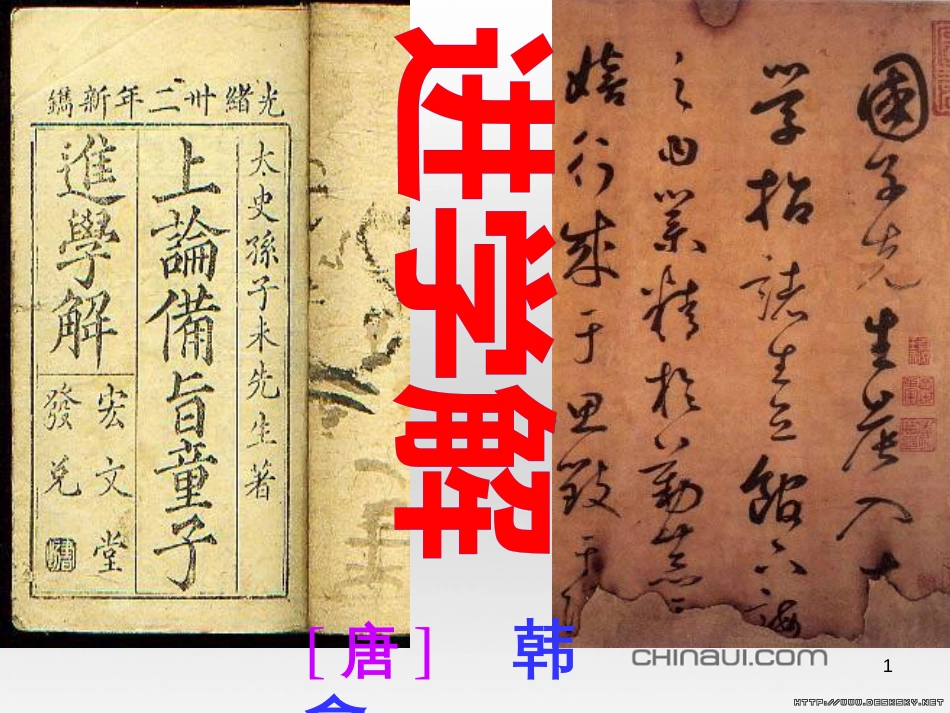 光緒卅二年新鐫
太史孫子未先生著
上論備旨童子
進學解
宏文堂
發兌
进学解
國子先生晨入大
學招諸生立館下誨
之曰業精於勤荒
嬉行成于思毀于
［唐］ 韩
chinaui.com
1
HTTP://WWW.DESKSKY.NET